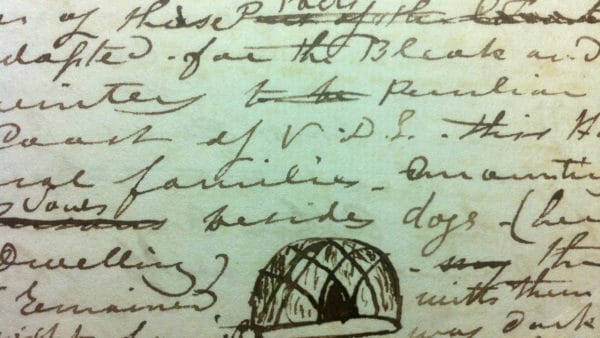 of these Parts of the
adapted for the Bleak and
winters to be Peculiar
Coast of V.D.L. this
ral families - Amounting
Souls besides dogs - (her
Dwelling) - my the
Remained with them
was dark